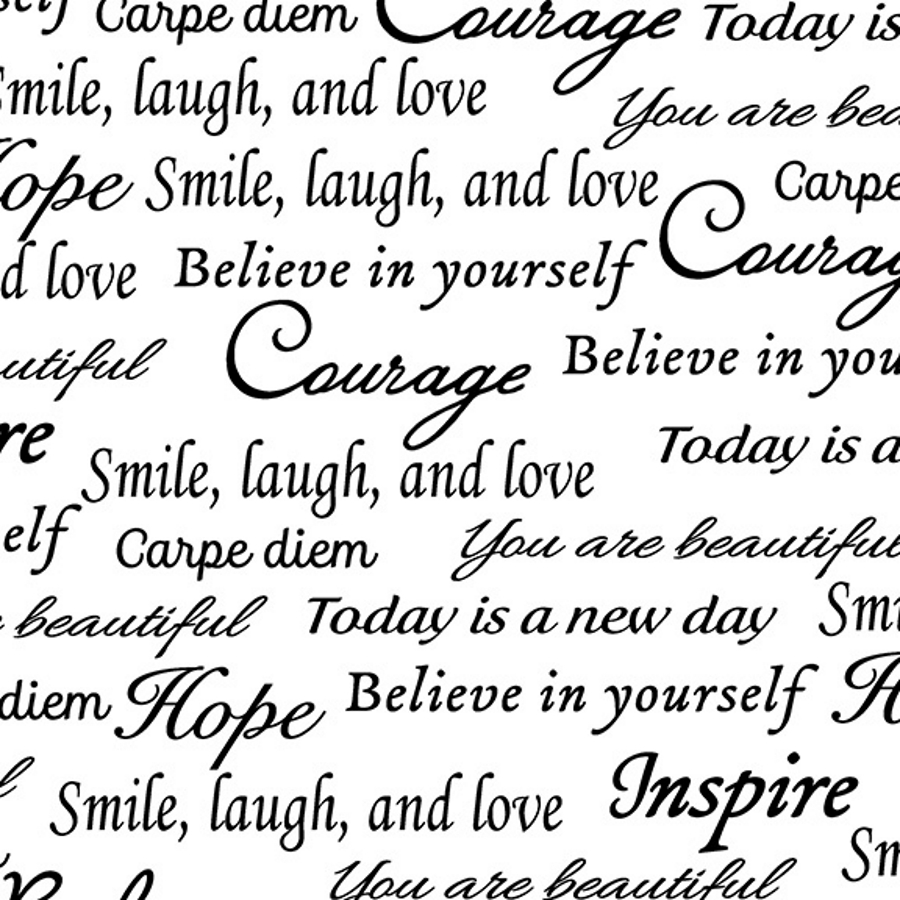 self Carpe diem Courage Today is
Smile, laugh, and love
You are bea
Hope Smile, laugh, and love Carpe
d love Believe in yourself Courag
utiful Courage Believe in you
re Smile, laugh, and love Today is a
elf Carpe diem You are beautiful
beautiful Today is a new day Smi
diem Hope Believe in yourself H
Smile, laugh, and love Inspire
You are beautiful Sm